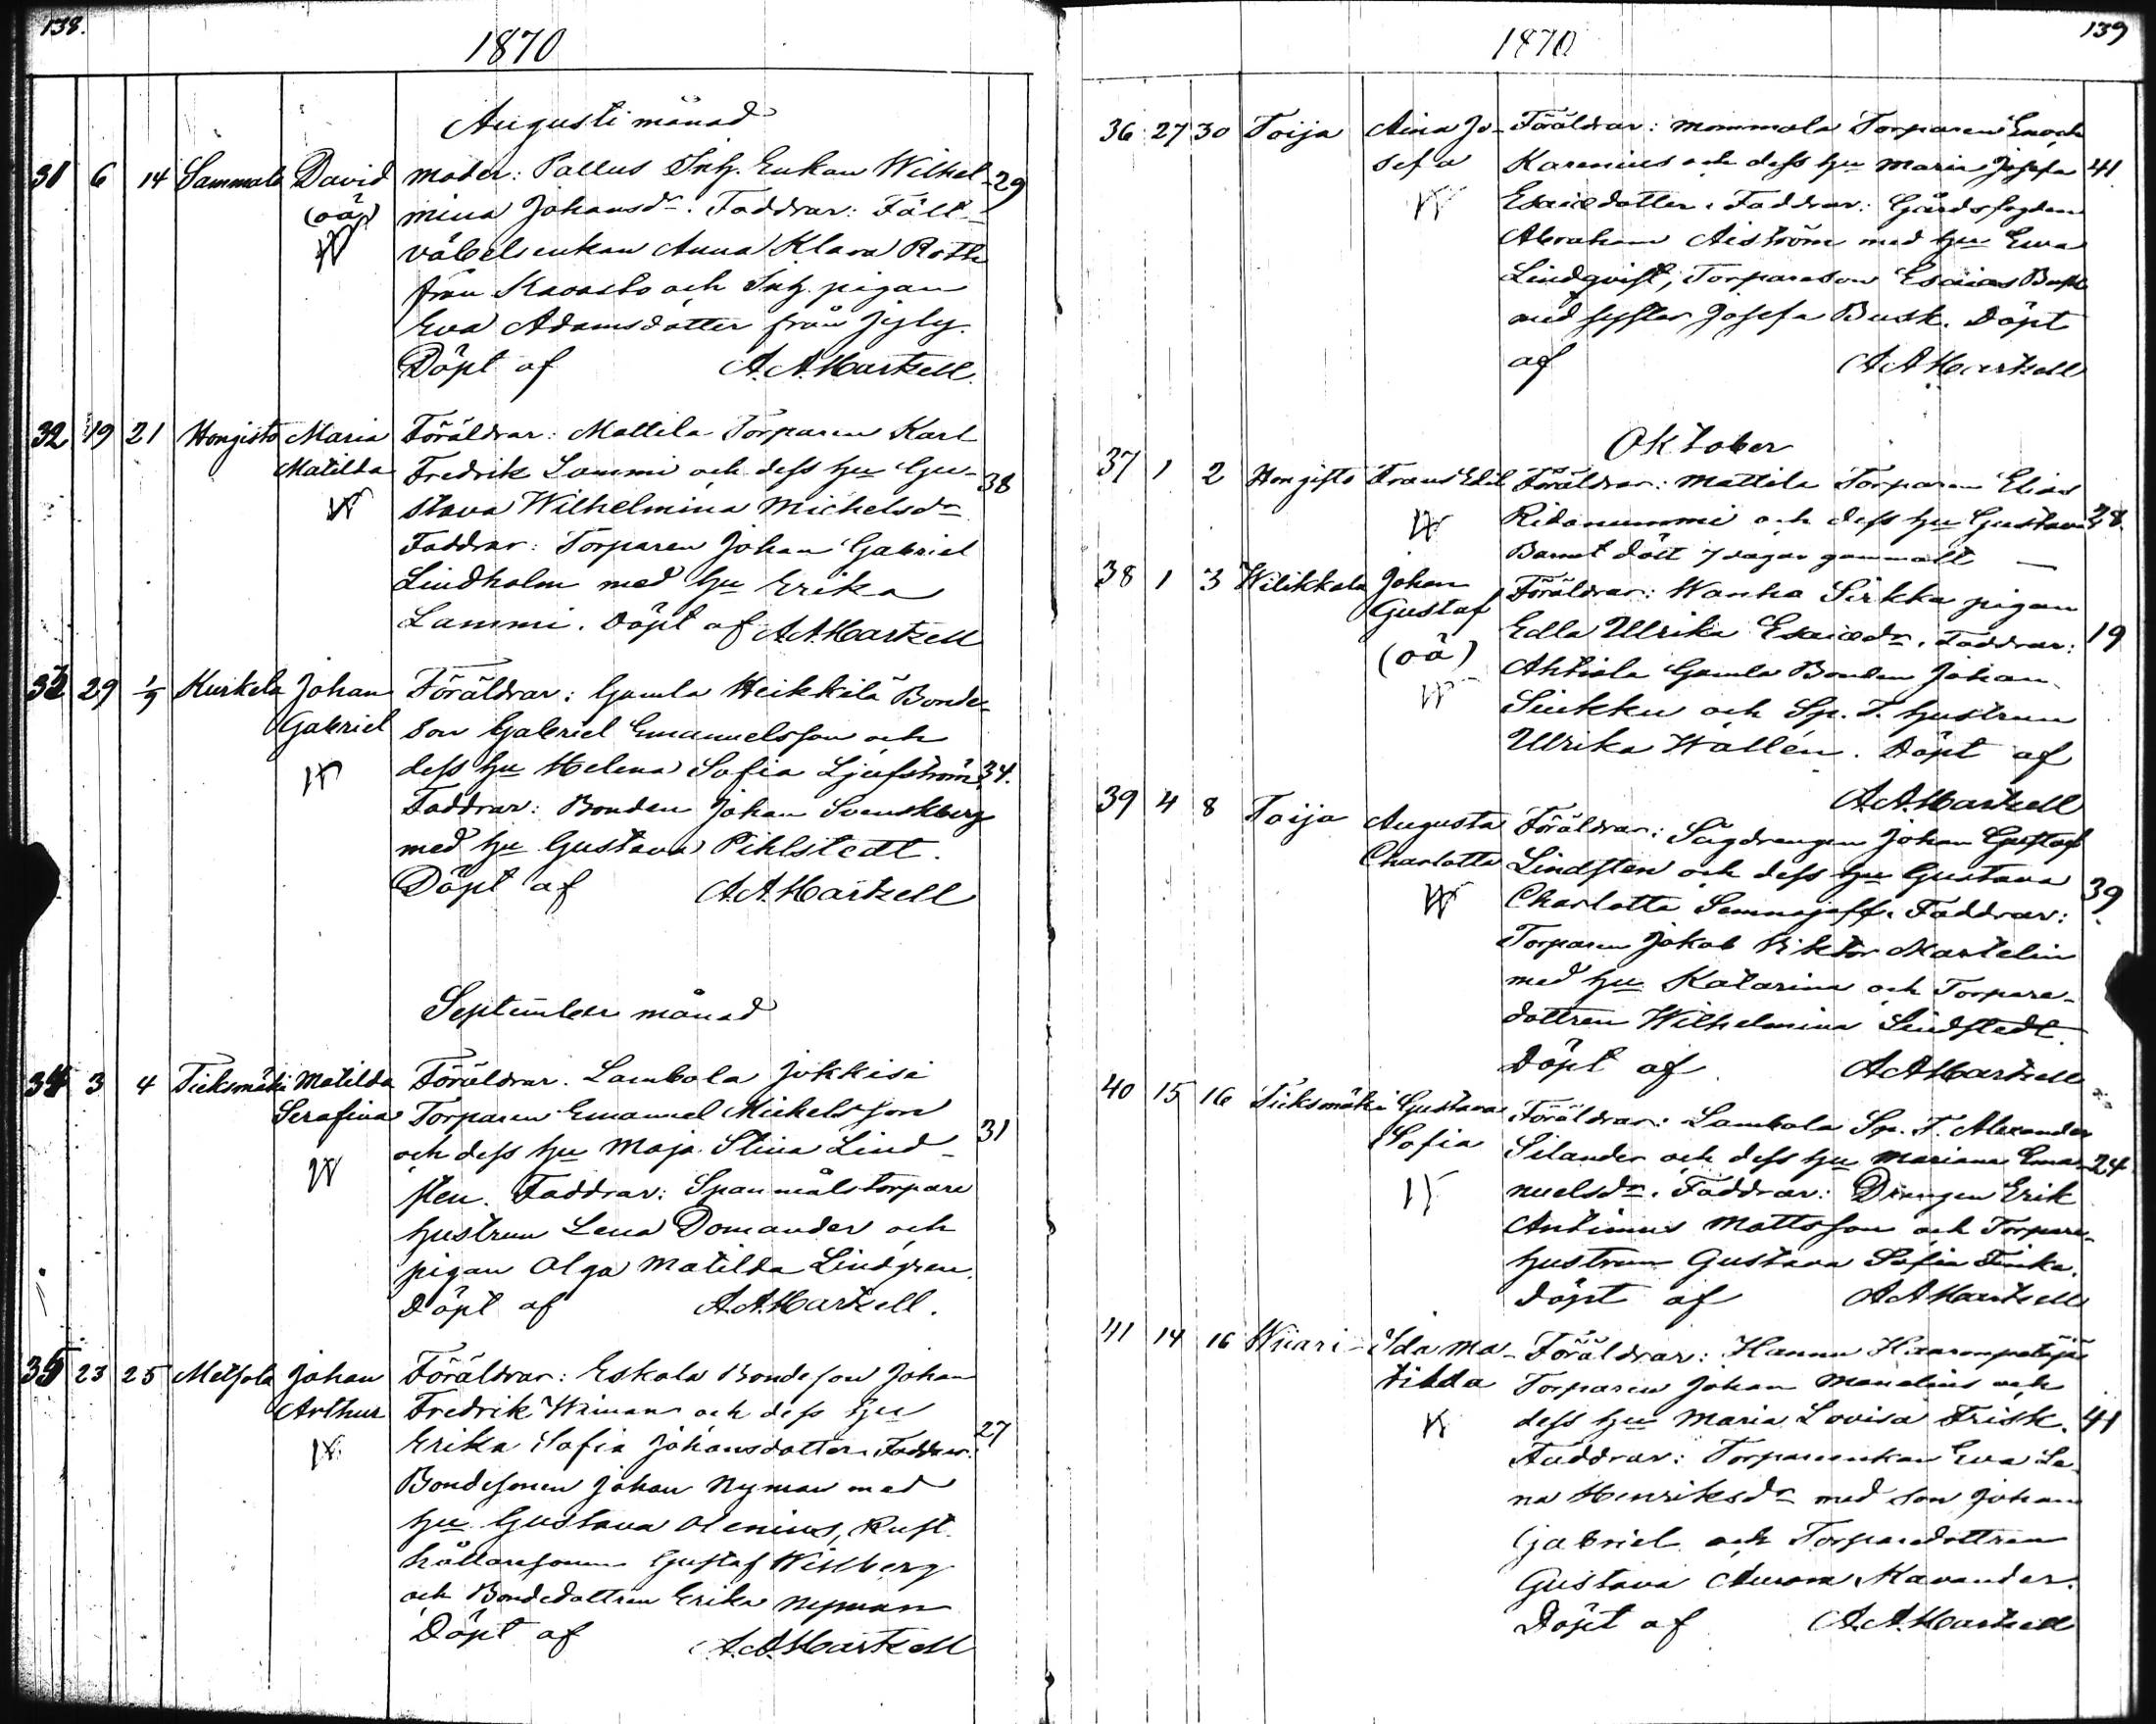 138.
1870
Augusti månad
31 6 14 Sammalo David moder: Pallus Inh. Enkan Wilhel- 29
(oä) mina Johansdr. Faddrar: Fält-
väbelsenkan Anna Klara Roth
från Kavasto och Inh. pigan
Eva Adamsdotter från
Döpt af A.A.Hartzell.
32 19 21 Hongisto Maria Föräldrar: Mattila Torparen Karl
Matilda Fredrik Lammi och dess hu Gu- 38
stava Wilhelmina Michelsdr
Faddrar: Torparen Johan Gabriel
Lindholm med hu Erika
Lammi. Döpt af A.A.Hartzell
33 29 1/9 Kurkela Johan Föräldrar: Gamla Heikkilä Bonde-
Gabriel son Gabriel Emanuelsson och
dess hu Helena Sofia Ljufström 34.
Faddrar: Bonden Johan Svenskberg
med hu Gustava Pihlstedt.
Döpt af A.A.Hartzell
September månad
34 3 4 Tieksmäki Matilda Föräldrar. Lambola Jokkisi
Serafina Torparen Emanuel Michelsson
och dess hu Maja Stina Lind- 31
sten. Faddrar: Spanmålstorpare
hustrun Lena Domander och
pigan Olga Matilda Lindgren.
Döpt af A.A.Hartzell.
35 23 25 Metsola Johan Föräldrar: Eskola Bondeson Johan
Arthur Fredrik Wiman och dess hu
Erika Sofia Johansdotter. Faddrar: 27
Bondesonen Johan Nyman med
hu Gustava Alenius, Rust-
hållaresonen Gustaf Wikberg
och Bondedottren Erika Nyman
Döpt af A.A.Hartzell
139
1870
36 27 30 Toija Aina Jo- Föräldrar: Mommola Torparen Enoch
sefa Karenius och dess hu Maria Josefa 41
Esaiedotter. Faddrar: Gårdsfogden
Abraham Aiström med hu Eva
Lindqvist, Torpareson Esaias Busk
med syster Josefa Busk. Döpt
af A.A.Hartzell
Oktober
37 1 2 Hongisto Frans Edil Föräldrar: Mattila Torparen Elias
Ridanummi och dess hu Gustava 28.
Barnet dött 7 dagar gammalt
38 1 3 Wilikkala Johan Föräldrar: Wanha Sirkka pigan
Gustaf Edla Ulrika Esaiedr. Faddrar: 19
(oä) Ahtiala Gamla Bonden Johan
Sinkku och Sp. T. hustrun
Ulrika Wallén. Döpt af
A.A.Hartzell
39 4 8 Toija Augusta Föräldrar: Sågdrengen Johan Gustaf
Charlotta Lindsten och dess hu Gustava 39.
Charlotta Faddrar:
Torparen Jakob Viktor Martelin
med hu Katarina och Torpare-
dottren Wilhelmina Lindstedt.
Döpt af A.A.Hartzell
40 15 16 Tieksmäki Gustava Föräldrar: Lambola Sp. T. Alexander
Sofia Silander och dess hu Mariana Ema- 24
nuelsdr. Faddrar: Drengen Erik
Antinus Mattsson och Torpare-
hustrun Gustava Sofia
Döpt af A.A.Hartzell
41 14 16 Wiiari Ida Ma- Föräldrar: Hannu
tilda Torparen Johan Manelius och
dess hu Maria Lovisa Frisk. 41
Faddrar: Torpareenkan Eva Le-
na Henriksdr med son Johan
Gabriel och Torparedottren
Gustava Aurora Kavander.
Döpt af A.A.Hartzell